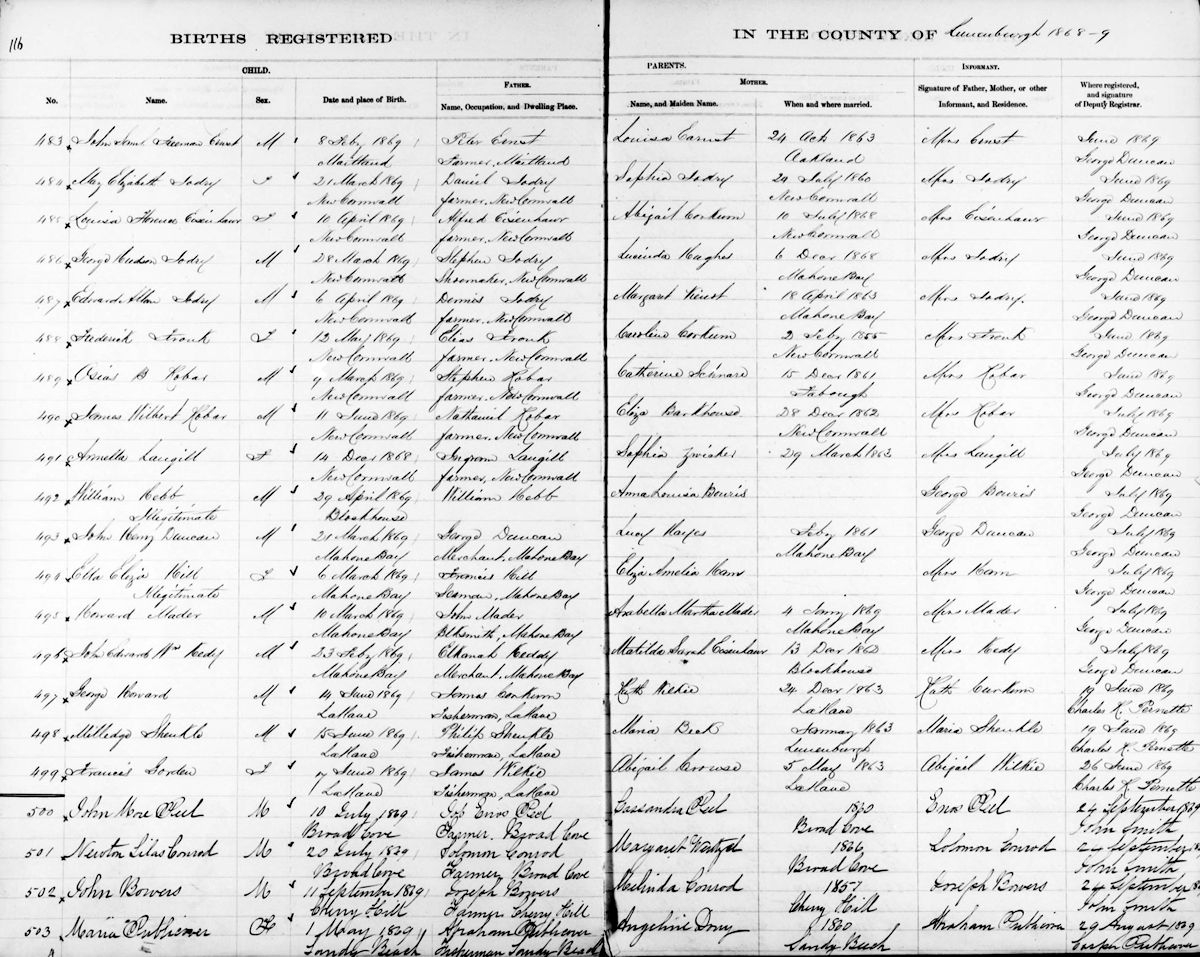 116
BIRTHS REGISTERED IN THE COUNTY OF Lunenburgh 1868-9
CHILD. PARENTS. INFORMANT.
FATHER. MOTHER. Where registered, and signature of Deputy Registrar.
No. Name. Sex. Date and place of Birth. Name, Occupation, and Dwelling Place. Name, and Maiden Name. When and where married. Signature of Father, Mother, or other Informant, and Residence.
483 John Freeman Ernst M 8 Feby 1869 Peter Ernst Louisa Earnst 24 Oct 1863 Mrs Ernst June 1869
Maitland Farmer, Maitland Oakland George Duncan
484 May Elizabeth Jodry F 21 March 1869 Daniel Jodry Sophia Jodry 24 July 1860 Mrs Jodry June 1869
New Cornwall farmer, New Cornwall New Cornwall George Duncan
485 Louisa Florence Eisenhaur F 10 April 1869 Alfred Eisenhaur Abigail Corkum 10 July 1868 Mrs Eisenhaur June 1869
New Cornwall farmer, New Cornwall New Cornwall George Duncan
486 George Hudson Jodry M 28 March 1869 Stephen Jodry Lucinda Hughes 6 Decr 1868 Mrs Jodry June 1869
New Cornwall Shoemaker, New Cornwall Mahone Bay George Duncan
487 Edward Allan Jodry M 6 April 1869 Dennis Jodry Margaret 18 April 1863 Mrs Jodry. June 1869
New Cornwall farmer, New Cornwall Mahone Bay George Duncan
488 Frederick Fronk F 12 May 1869 Elias Fronk Caroline Corkum 2 Feby 1855 Mrs Fronk June 1869
New Cornwall farmer, New Cornwall New Cornwall George Duncan
489 Osias B Hobar M 7 March 1869 Stephen Hobar Catherine Schnare 15 Decr 1861 Mrs Hobar June 1869
New Cornwall farmer, New Cornwall George Duncan
490 James Wilbert Hobar M 11 June 1869 Nathaniel Hobar Eliza Barkhouse 28 Decr 1862 Mrs Hobar July 1869
New Cornwall farmer, New Cornwall New Cornwall George Duncan
491 Armella Langill F 14 Decr 1868 Ingram Langill Sophia Zwicker 29 March 1863 Mrs Langill July 1869
New Cornwall farmer, New Cornwall George Duncan
492 William Hebb M 29 April 1869 William Hebb Anna Louisa Bouris George Bouris July 1869
Illegitimate Blockhouse George Duncan
493 John Henry Duncan M 21 March 1869 George Duncan Lucy Hayes Feby 1861 George Duncan July 1869
Mahone Bay Merchant, Mahone Bay Mahone Bay George Duncan
494 Etta Eliza Hill F 6 March 1869 Francis Hill Eliza Amelia Ham Mrs Ham July 1869
Illegitimate Mahone Bay Seaman, Mahone Bay George Duncan
495 Howard Mader M 10 March 1869 John Mader Arabella Martha Mader 4 Jany 1869 Mrs Mader July 1869
Mahone Bay Blksmith, Mahone Bay Mahone Bay George Duncan
496 John Edward Wm Kedy M 23 Feby 1869 Elkanah Keddy Matilda Sarah Eisenhaur 13 Decr 1862 Mrs Kedy July 1869
Mahone Bay Merchant, Mahone Bay Blockhouse George Duncan
497 George Howard M 14 June 1869 James Conkum Kath Wilkie 24 Decr 1863 Kath Curkum 19 June 1869
LaHave Fisherman, LaHave LaHave Charles K. Pernette
498 Milledge Shenkle M 15 June 1869 Philip Shenkle Maria Beck January 1863 Maria Shenkle 19 June 1869
LaHave Fisherman, LaHave Lunenburgh Charles K. Pernette
499 Francis Gorden F 7 June 1869 James Wilkie Abigail Crouse 5 May 1863 Abigail Wilkie 26 June 1869
LaHave Fisherman, LaHave LaHave Charles K. Pernette
500 John More Peel M 10 July 1869 Enos Peel Cassandra Peel Enos Peel 24 September 1869
Broad Cove Farmer. Broad Cove Broad Cove John Smith
501 Newton Silas Conrod M 20 July 1869 Solomon Conrod Margaret Wentzel 1866 Solomon Conrod 24 September
Broad Cove Farmer Broad Cove Broad Cove John Smith
502 John Bowers M 11 September 1869 Joseph Bowers Melinda Conrod 1857 Joseph Bowers 24 September
Cherry Hill Farmer Cherry Hill Cherry Hill John Smith
503 Maria Publicover F 1 May 1869 Abraham Publicover Angeline 1860 Abraham Publicover 29 August 1869
Sandy Beach Fisherman Sandy Beach Sandy Beach Casper Publicover